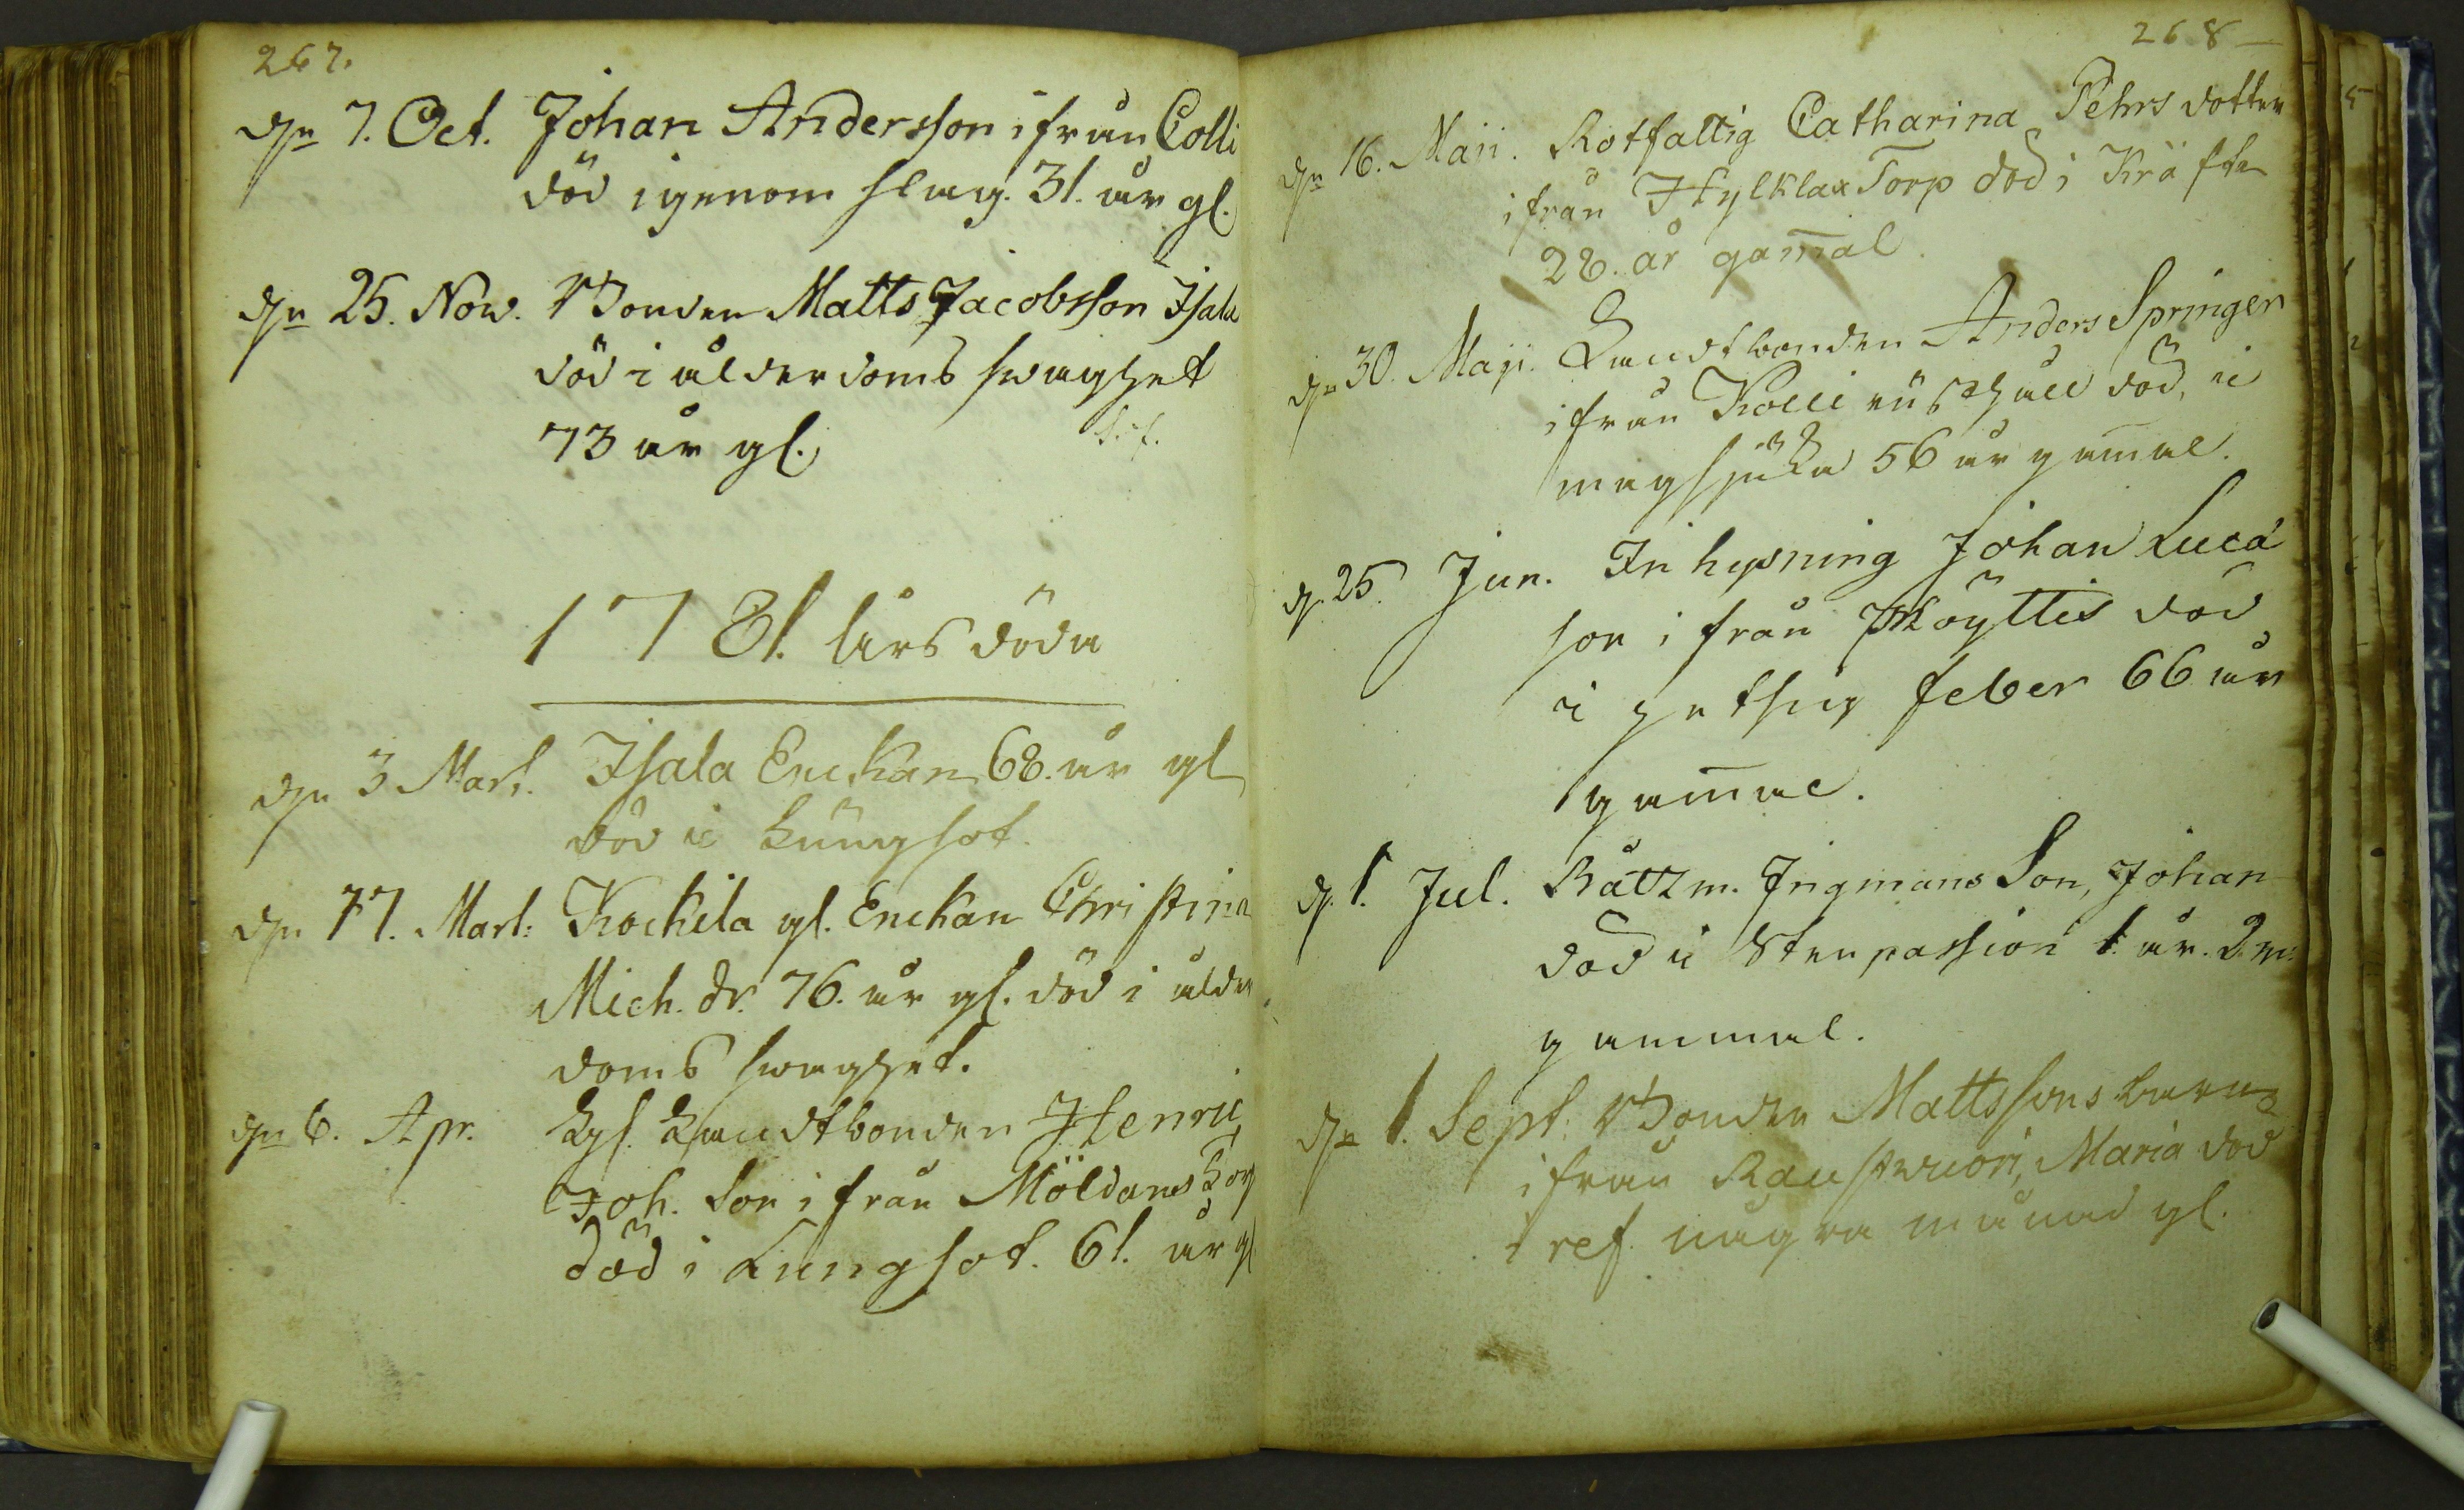 267.
dn 7. Oct. Johan Andersson ifrån Colli
död igenom slag. 31. år gl.
dn 25. Nov. Bonden Matts Jacobsson Isala
död i ålderdoms swaghet
73 år gl.
1781. Års döda
dn 3 Mart. Isala Enckan 68. år gl
död i Lungsot.
dn 17. Mart: Kockila gl. Enckan Christina
Mich. dr. 76. år gl. död i ålder
doms swaghet.
dn 6. Apr. Landtbonden Henric
Joh. Son ifrån Möldars
död i Lungsot. 61. år gl
268
dn 16. Maji. Rotfattig Catharina Pehrs dotter
ifrån Hylklax Torp död i Kräftan
28. år gam̄al.
dn 30. Maji. Landtbonden Anders Springer
ifrån Kolli rusthåll död, i
magsjuka 56 år gam̄al.
d. 25. Jun. Inhysning Johan Luca
son ifrån Pköyttis död
i hetsig feber 66 år
gam̄al.
d. 1. Jul. Båtzm. Ingmans Son, Johan
död i Stenpassion 1. år. 2. m:
gammal.
dn 1. Sept. Bonden Mattssons barn
ifrån Rauskuori, Maria död
i ref. några månad gl.